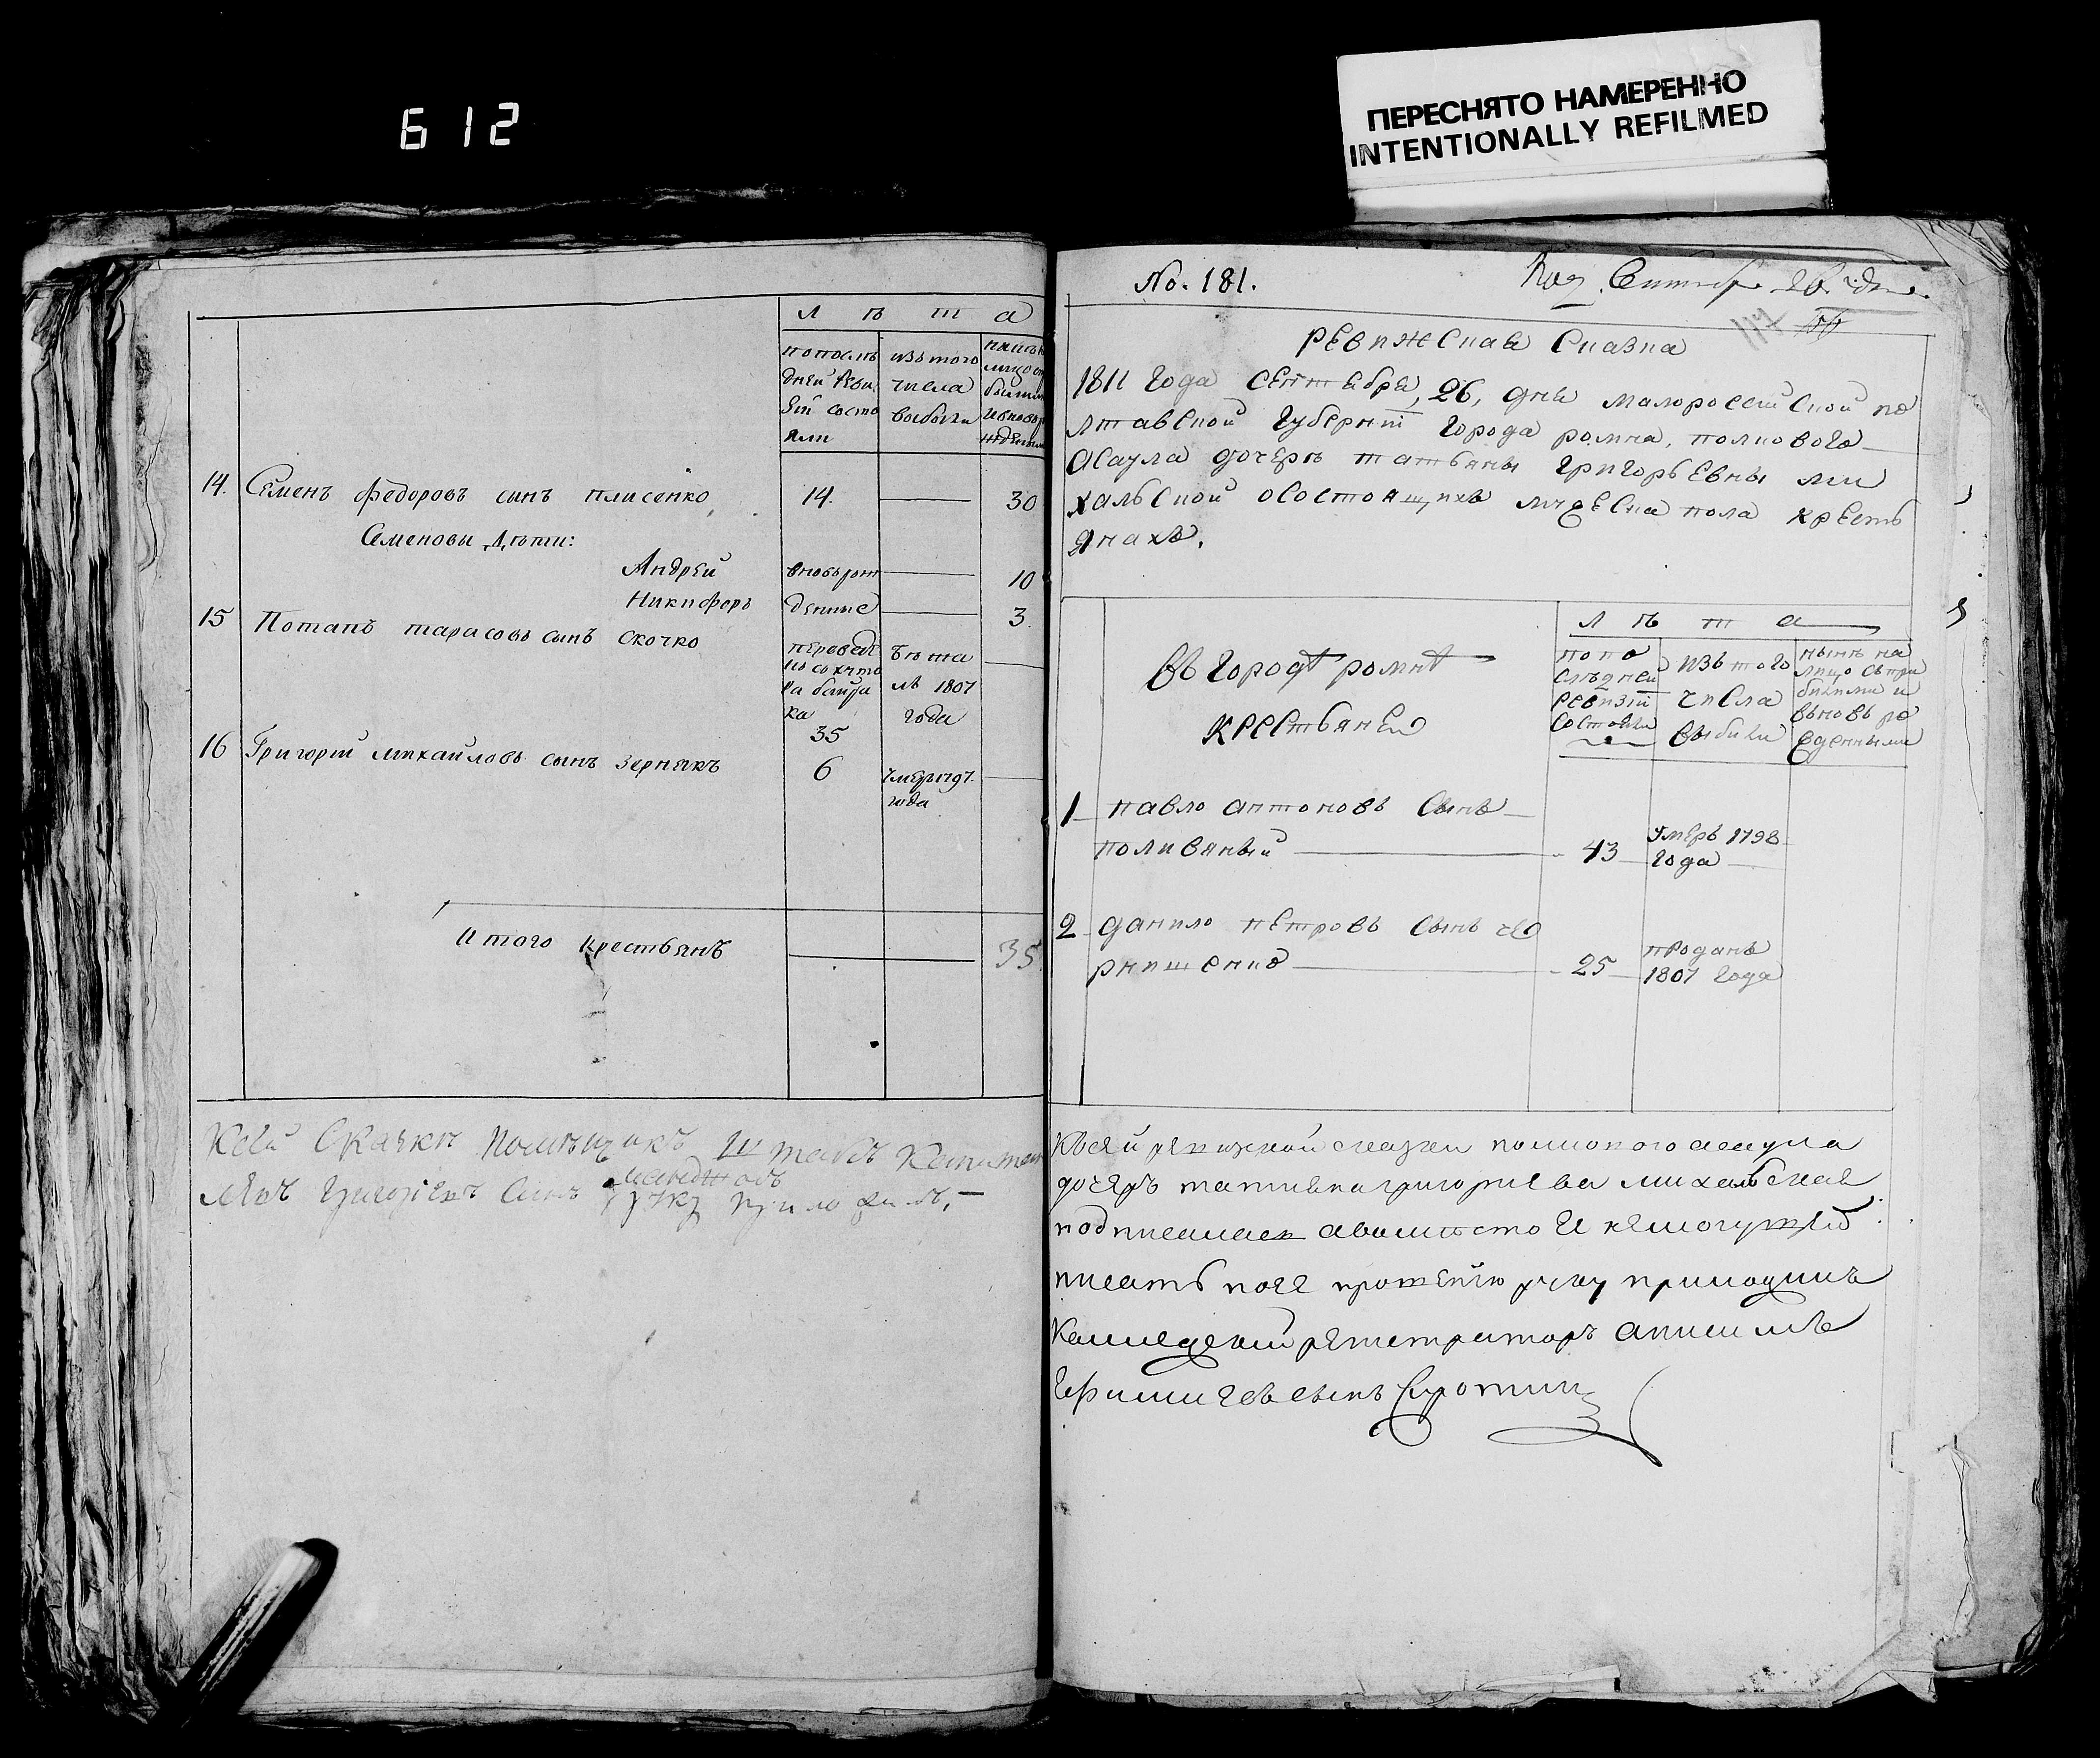 612
ПЕРЕСНЯТО НАМЕРЕННО
INTENTIONALLY REFILMED
Л ѣ т а
по послѣ
дней Реви
зій состо
яли
изъ того
числа
выбыли
14. Семенъ Федоровъ сынъ плисенко, 14. 30
Семеновы Дѣти:
Андрей вновьрож 10
Никифоръ денные 3.
15 Потапъ тарасовъ сынъ скочко
35
лѣ 1807
года
16 Григорій михайловъ сынъ зернякъ 6
года
Итого крестьянъ 35.
Ксей Скаскѣ Помѣщикъ Штабсъ Капитан
Григориевъ Синъ
руку приложилъ,
No. 181.
117
ревижская Сказка
1811 года сентября, 26, дня малоросейской по
лтавской губерніи города ромна, полкового
Асаула дочерѣ татьяны григорьевны ми
хальской осостоящихъ мужеска пола кресть
янахъ.
Л ѣ т а
въ городѣ ромнѣ
крестьяне
по по
слѣдней
ревизіи
состояли
изъ того
числа
выбыли
нынѣ на
лицо съ при
былыми и
вьновь ро
жденными
1 павло антоновъ сынъ
поливяный 43 умеръ 1798
года
2 данило петровъ сынъ че
рнишенко 25 проданъ
1807 года
Ксей ревижской сказки полкового асаула
дочеръ татияна григориева михальская
подписалася авместо Ея немогущей
писать поея прошению руку приложилъ
Колледский регистраторъ анисимъ
сынъ